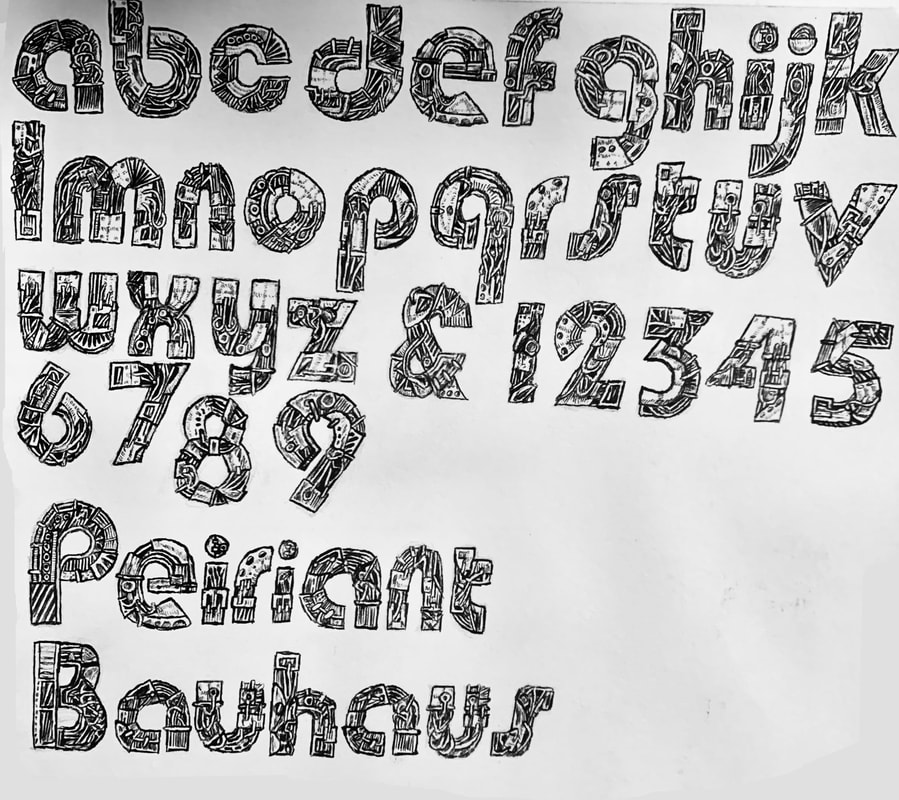 abcdefghijk
lmnopqrstuv
wxyz & 12345
6789
Peiriant
Bauhaus